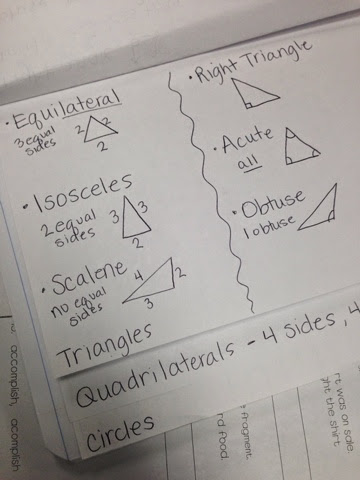 • Equilateral
3 equal
sides
2 2
2
• Isosceles
2 equal
sides
3 3
2
• Scalene
no equal
sides
4 2
3
• Right Triangle
• Acute
all
• Obtuse
1 obtuse
Triangles
Quadrilaterals - 4 sides, 4
Circles
accomplish, acomplish
fragment.
rd food.
rt was on sale
ght the shirt